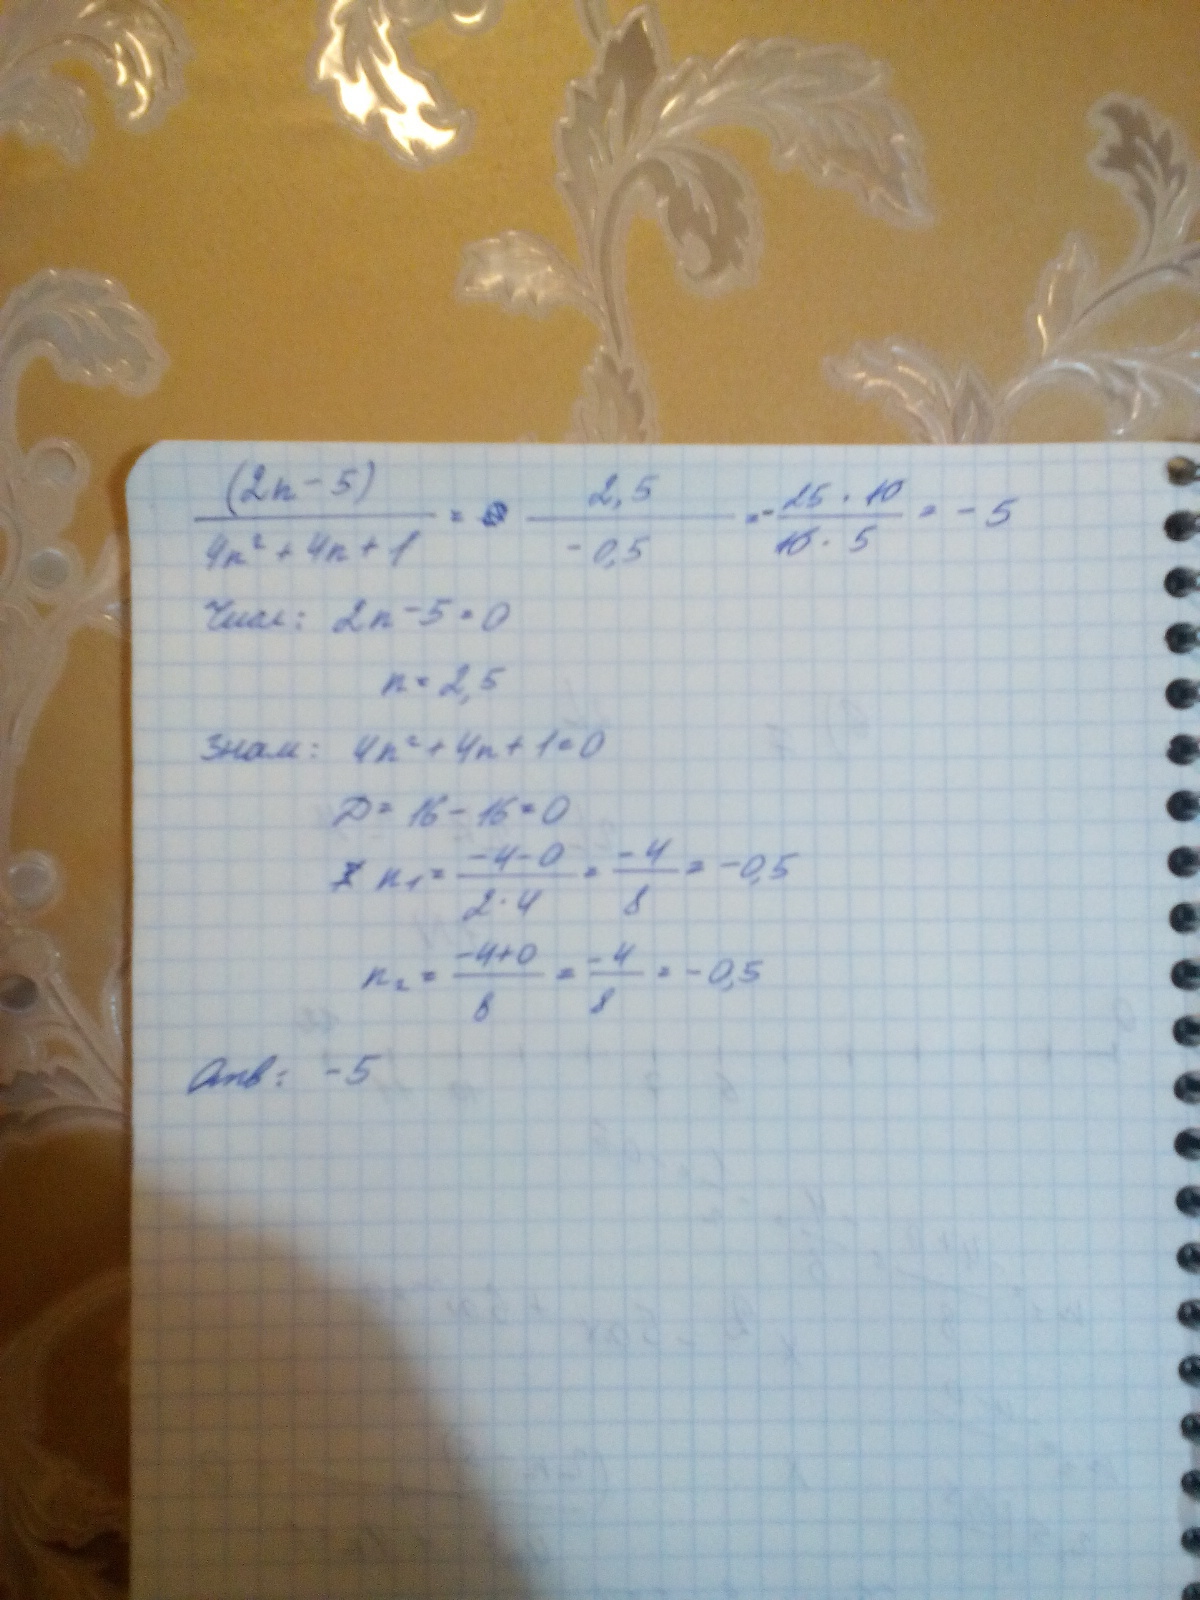 (2n-5)/(4n²+4n+1) = 2,5/(-0,5) = -(25·10)/(10·5) = -5
Числ: 2n-5=0
n=2,5
Знам: 4n²+4n+1=0
D=16-16=0
n₁=(-4-0)/(2·4)=(-4)/8=-0,5
n₂=(-4+0)/8=(-4)/8=-0,5
Отв: -5